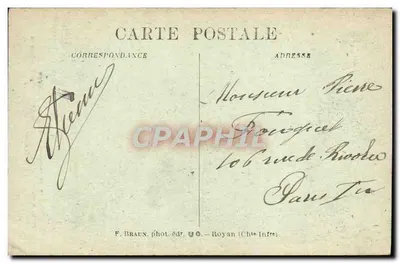 CARTE POSTALE
CORRESPONDANCE
ADRESSE
Monsieur Pierre
Fouquet
106 rue de Rivoli
Paris
CPAPHIL.COM
F. BRAUN, phot. édit. — Royan (Chte Infre)